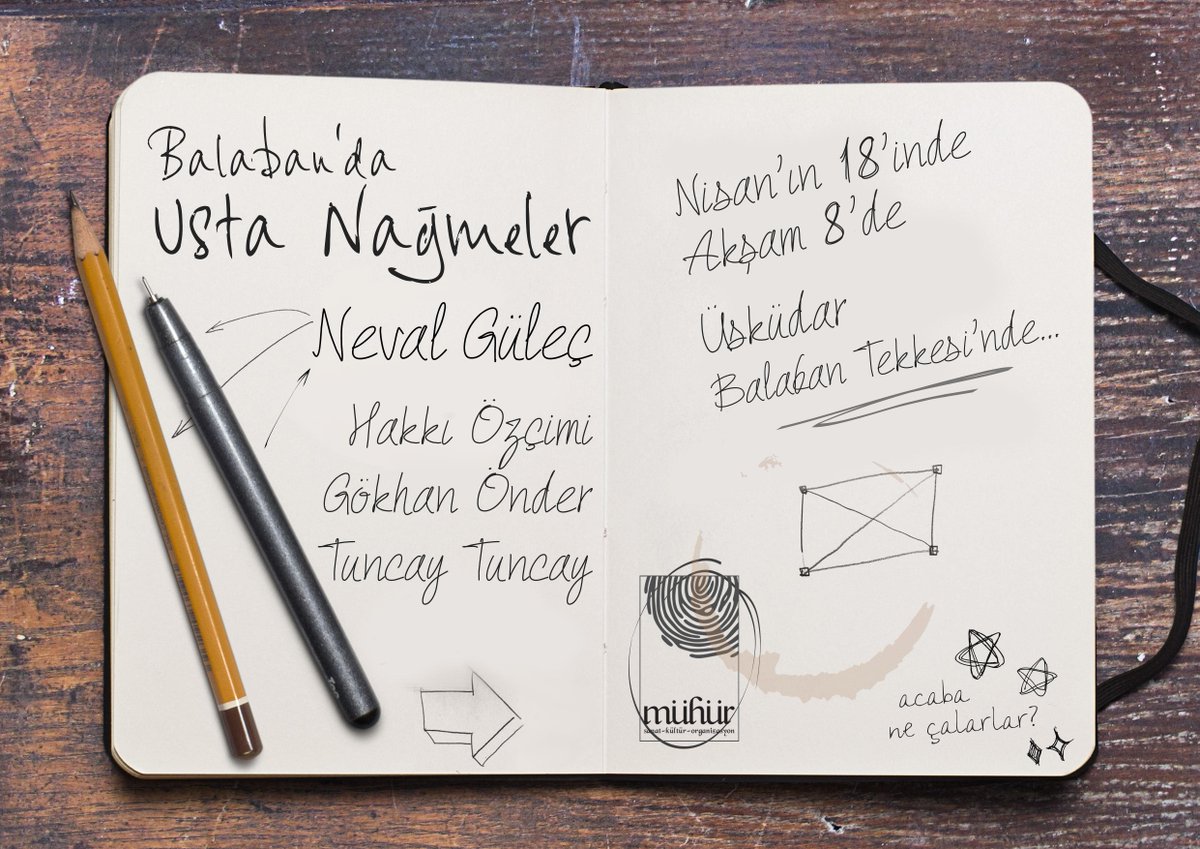 Balaban'da
Usta Nağmeler
Neval Güleç
Hakkı Özçimi
Gökhan Önder
Tuncay Tuncay
Nisan'ın 18'inde
Akşam 8'de
Üsküdar
Balaban Tekkesi'nde...
mühür
sanat-kültür-organisasyon
acaba
ne çalarlar?